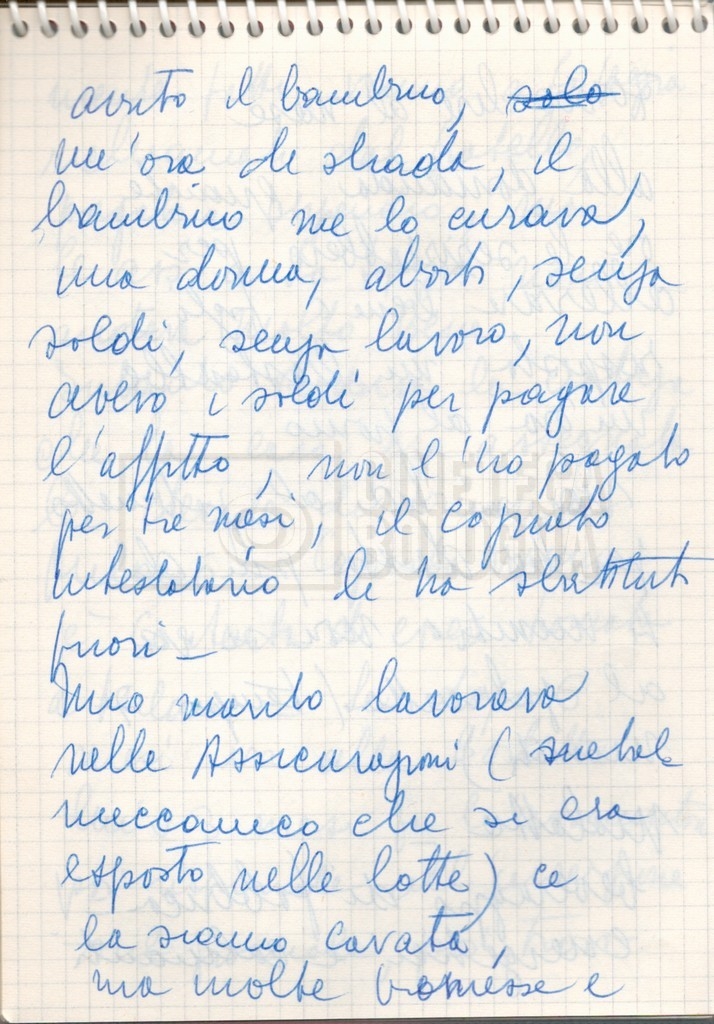 avuto il bambino, solo
un'ora di strada, il
bambino me lo curava,
una donna, aborti, senza
soldi, senza lavoro, non
avevo i soldi per pagare
l'affitto, non l'ho pagato
per tre mesi, il cognato
intestatario li ha sbattuti
fuori –
Mio marito lavorava
nelle Assicurazioni (
meccanico che si era
esposto nelle lotte) ce
la siamo cavata,
ma molte e
CINETECA
BOLOGNA